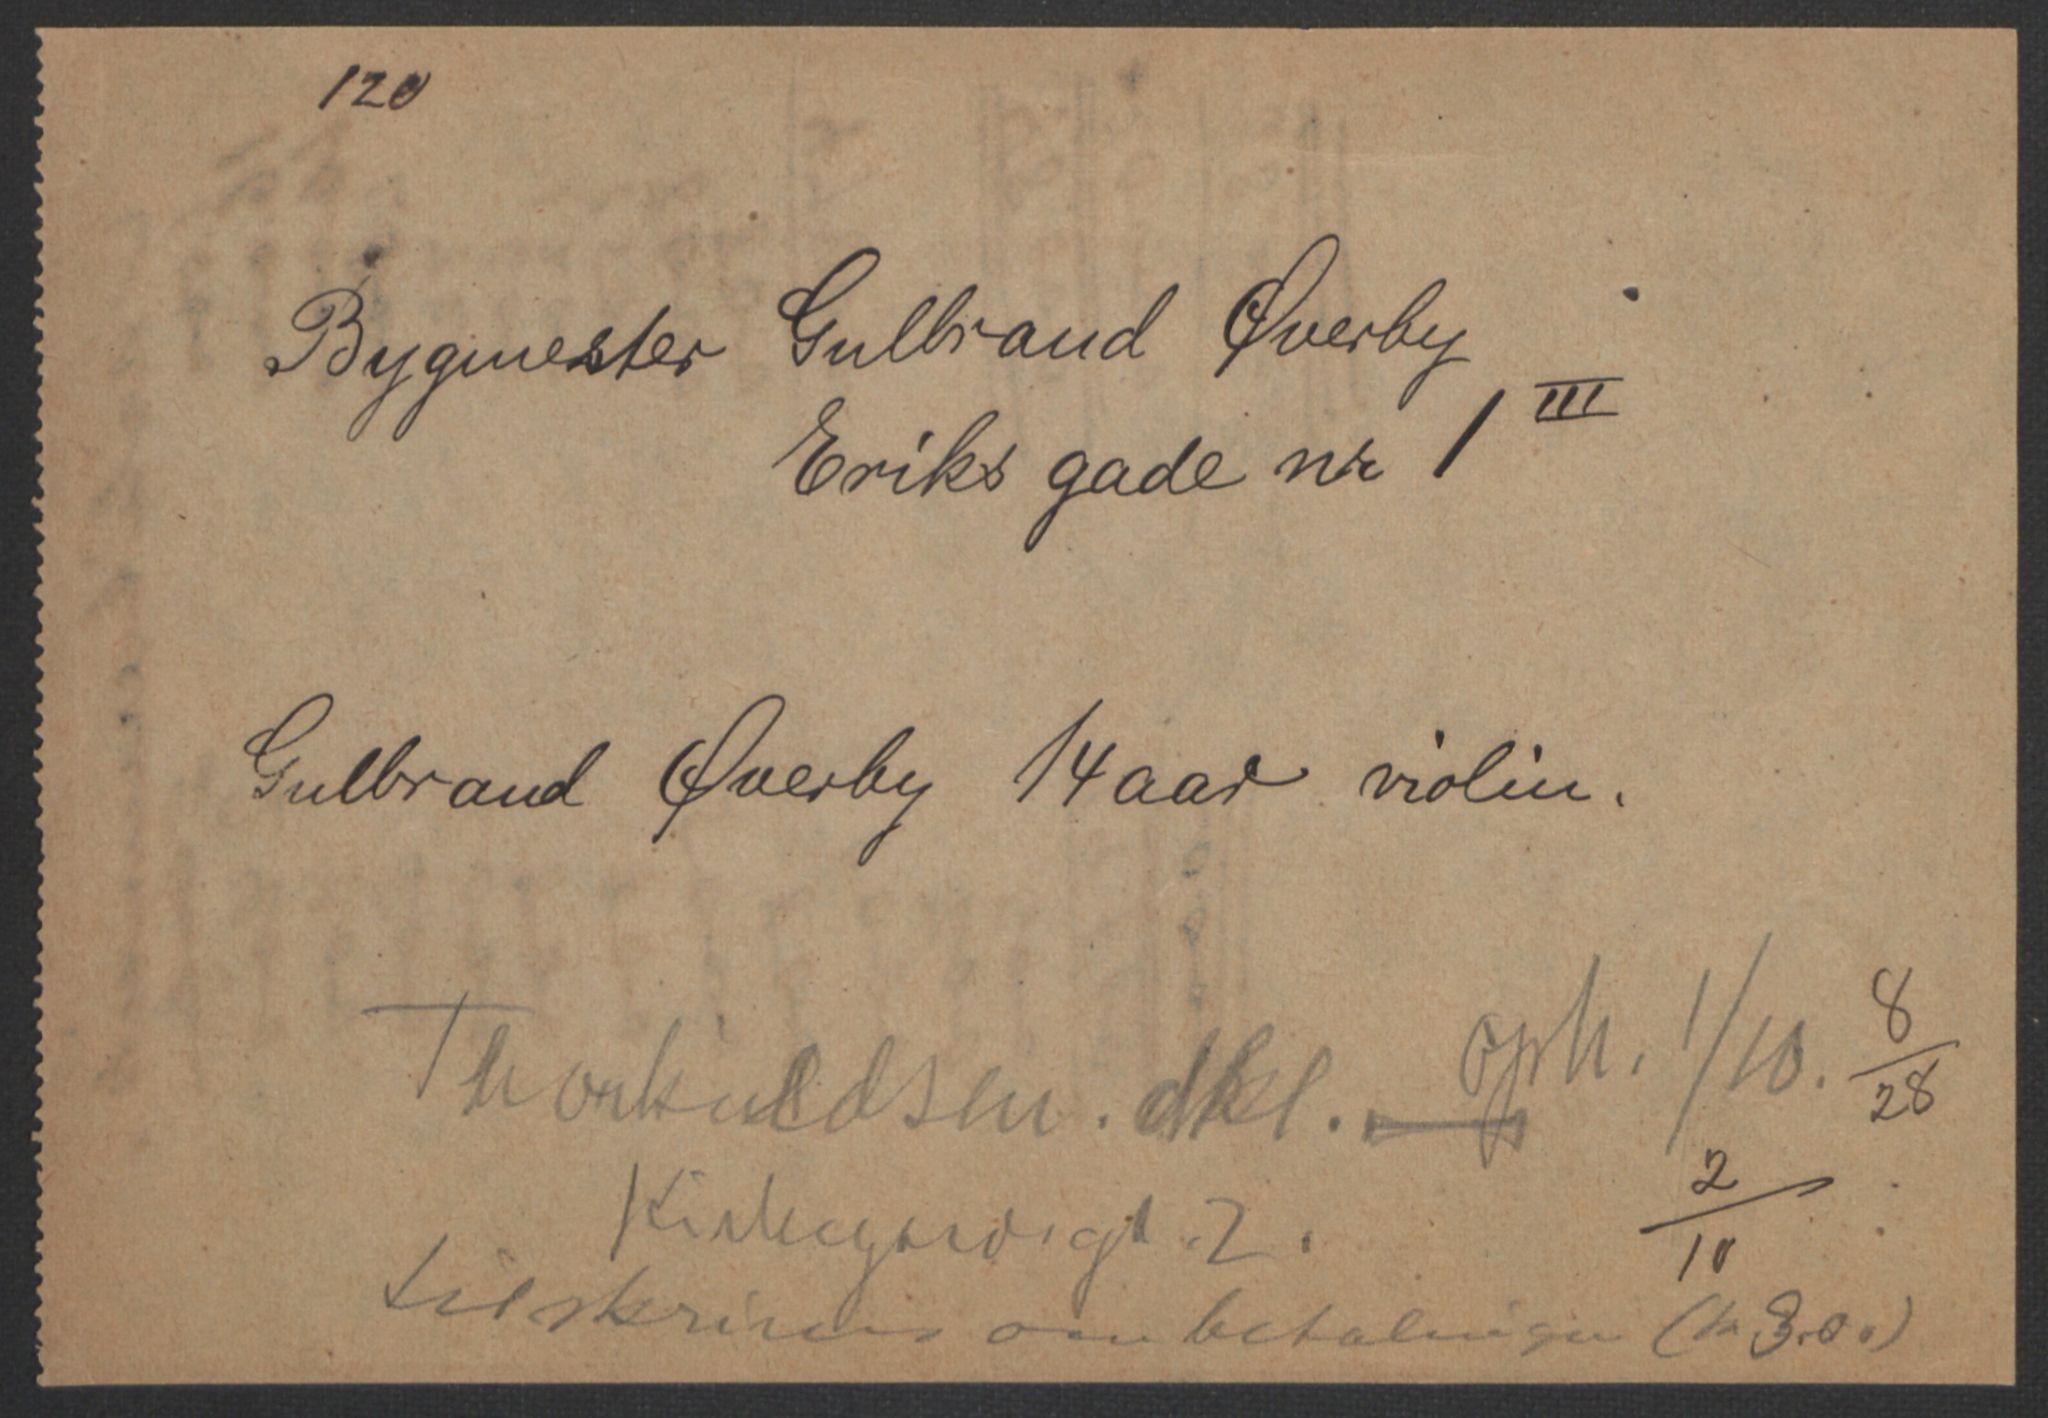 120
Bygmester Gulbrand Øverby
Eriks gade nr 1 III
Gulbrand Øverby 14 aar violin.
Thorkildsen. dkl. oph. 1/10. 8/28
2/10
Kirkegårdsgt. 2.
tilskrives om betalingen (kr 3.00)